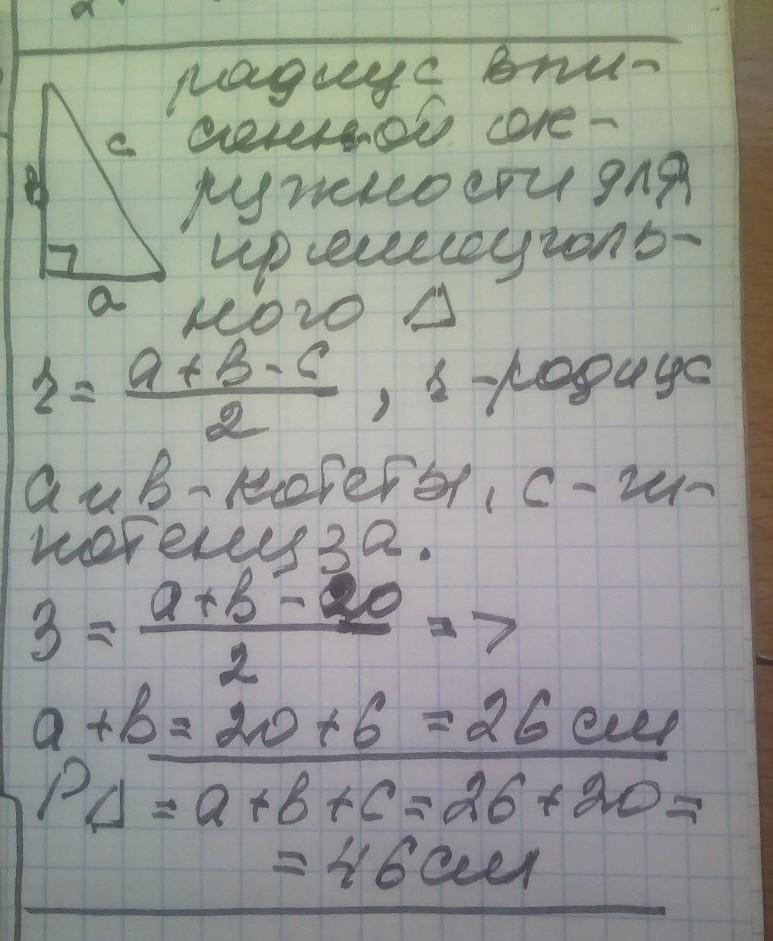 c
в
a
радиус впи-
санной ок-
ружности для
прямоуголь-
ного Δ
r = (a + в - c) / 2 , r - радиус
а и в - катеты, с - ги-
потенуза.
3 = (a + в - 20) / 2 =>
a + в = 20 + 6 = 26 см
PΔ = a + в + c = 26 + 20 =
= 46 см